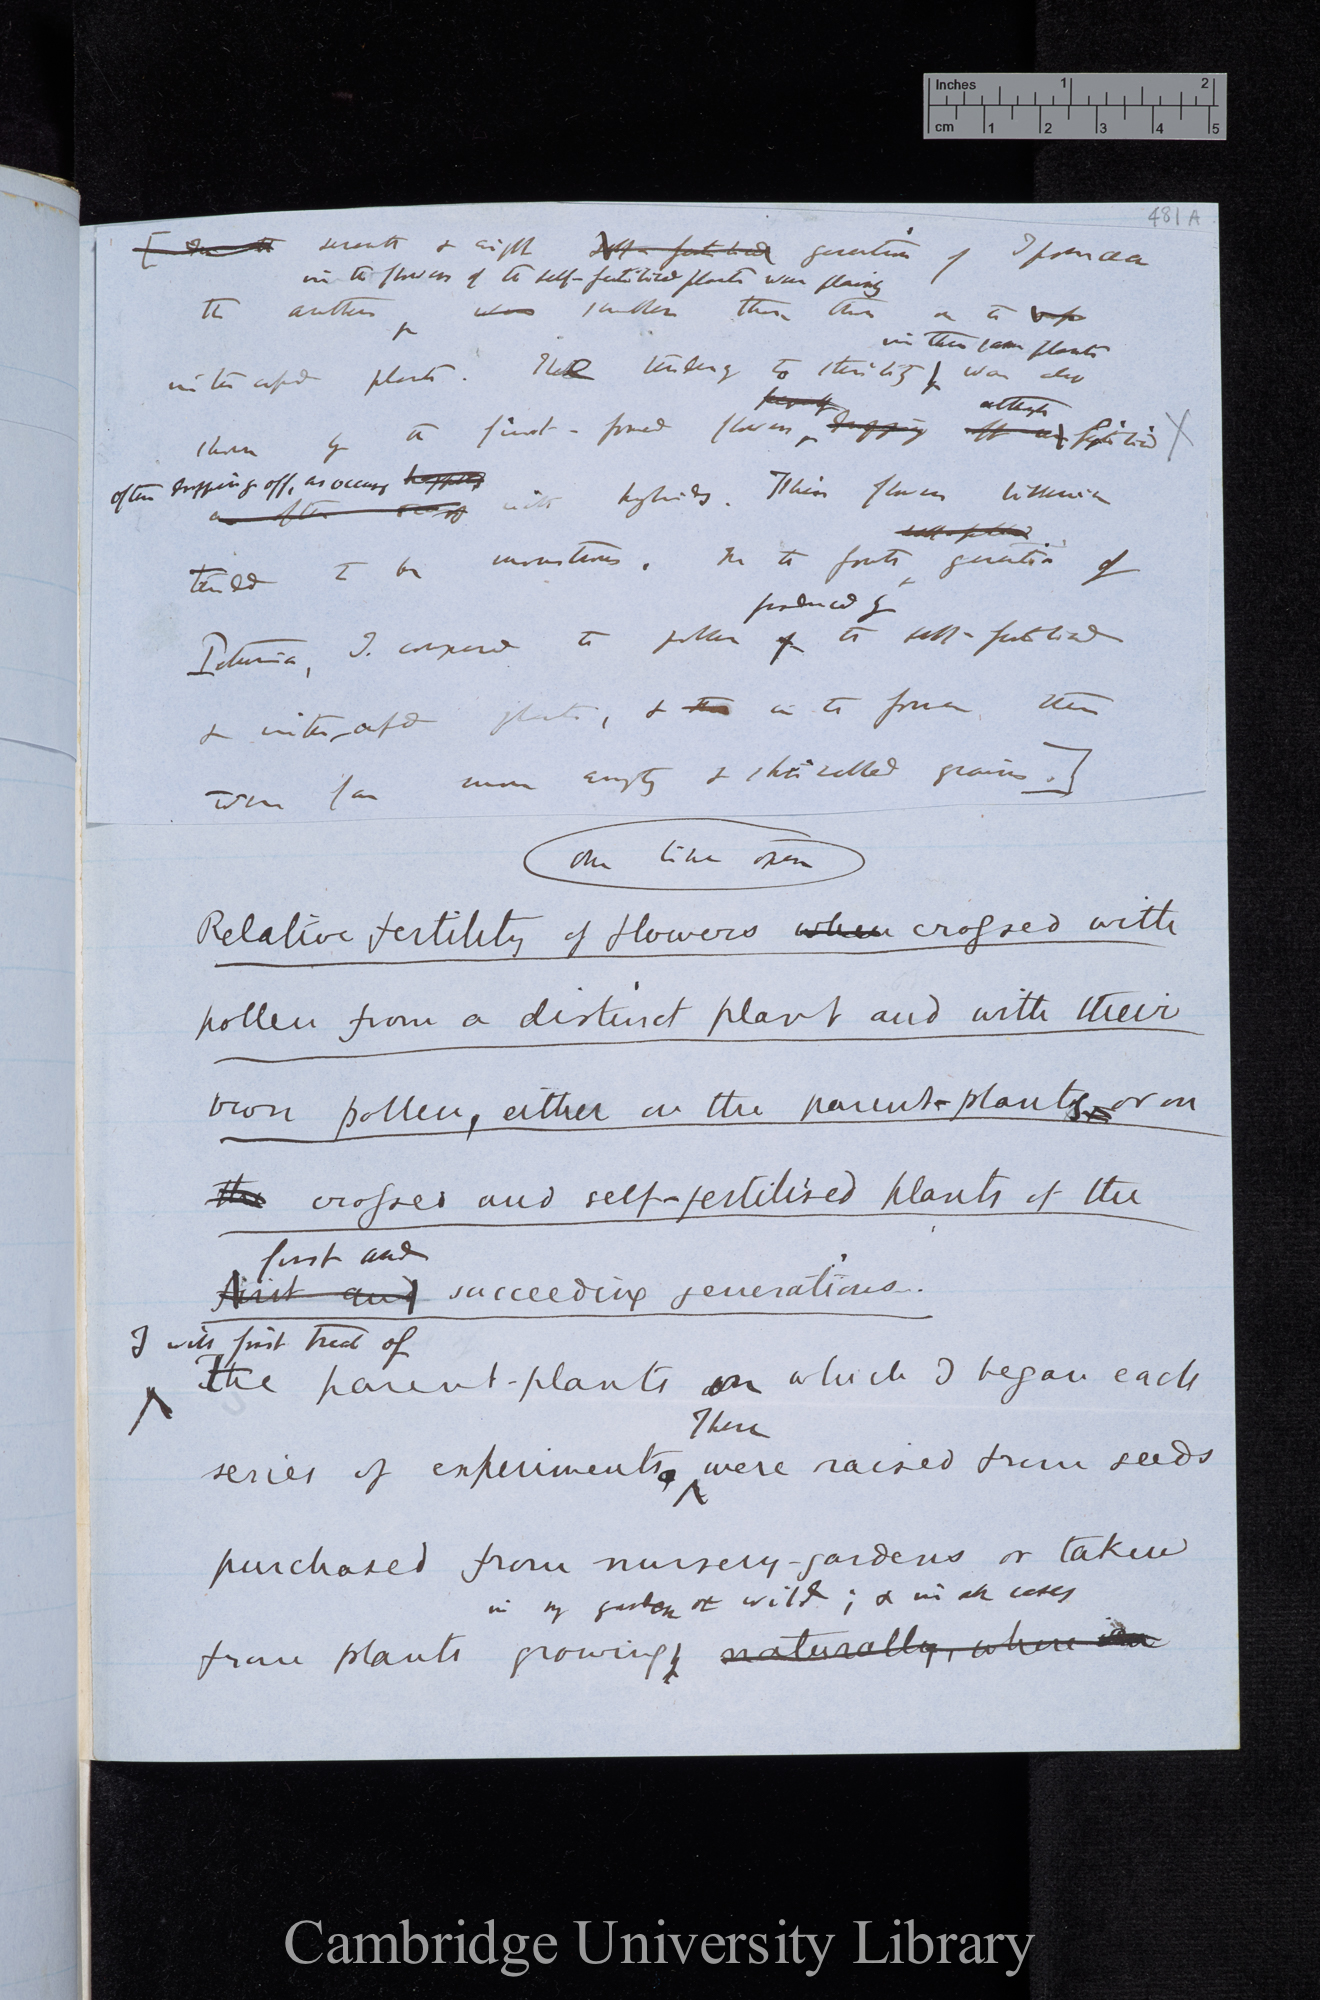 Inches 1 2
cm 1 2 3 4 5
481 A
[ In the seventh & eighth self-fertilised generation of Ipomoea
in the flowers of the self-fertilised plants were plainly
the anthers was smaller than those on the
in these same plants
inter-crossed plants. The tendency to sterility was also
although
shown by the first-formed flowers, dropping off fertilised X
often dropping off, as occurs happens
as often occurs with hybrids. Their flowers likewise
self-fertilised
tended to be monstrous. In the fourth generation of
produced by
Petunia, I compared the pollen of the self-fertilised
& inter-crossed plants, & in the former there
were far more empty & shrivelled grains.]
one line open
Relative fertility of flowers when crossed with
pollen from a distinct plant and with their
own pollen, either on the parent-plants, or on
the crossed and self-fertilised plants of the
first and
first and succeeding generations.
I will first treat of
The parent-plants on which I began each
These
series of experiments. were raised from seeds
purchased from nursery-gardens or taken
in my garden or wild; & in all cases
from plants growing naturally, where
Cambridge University Library